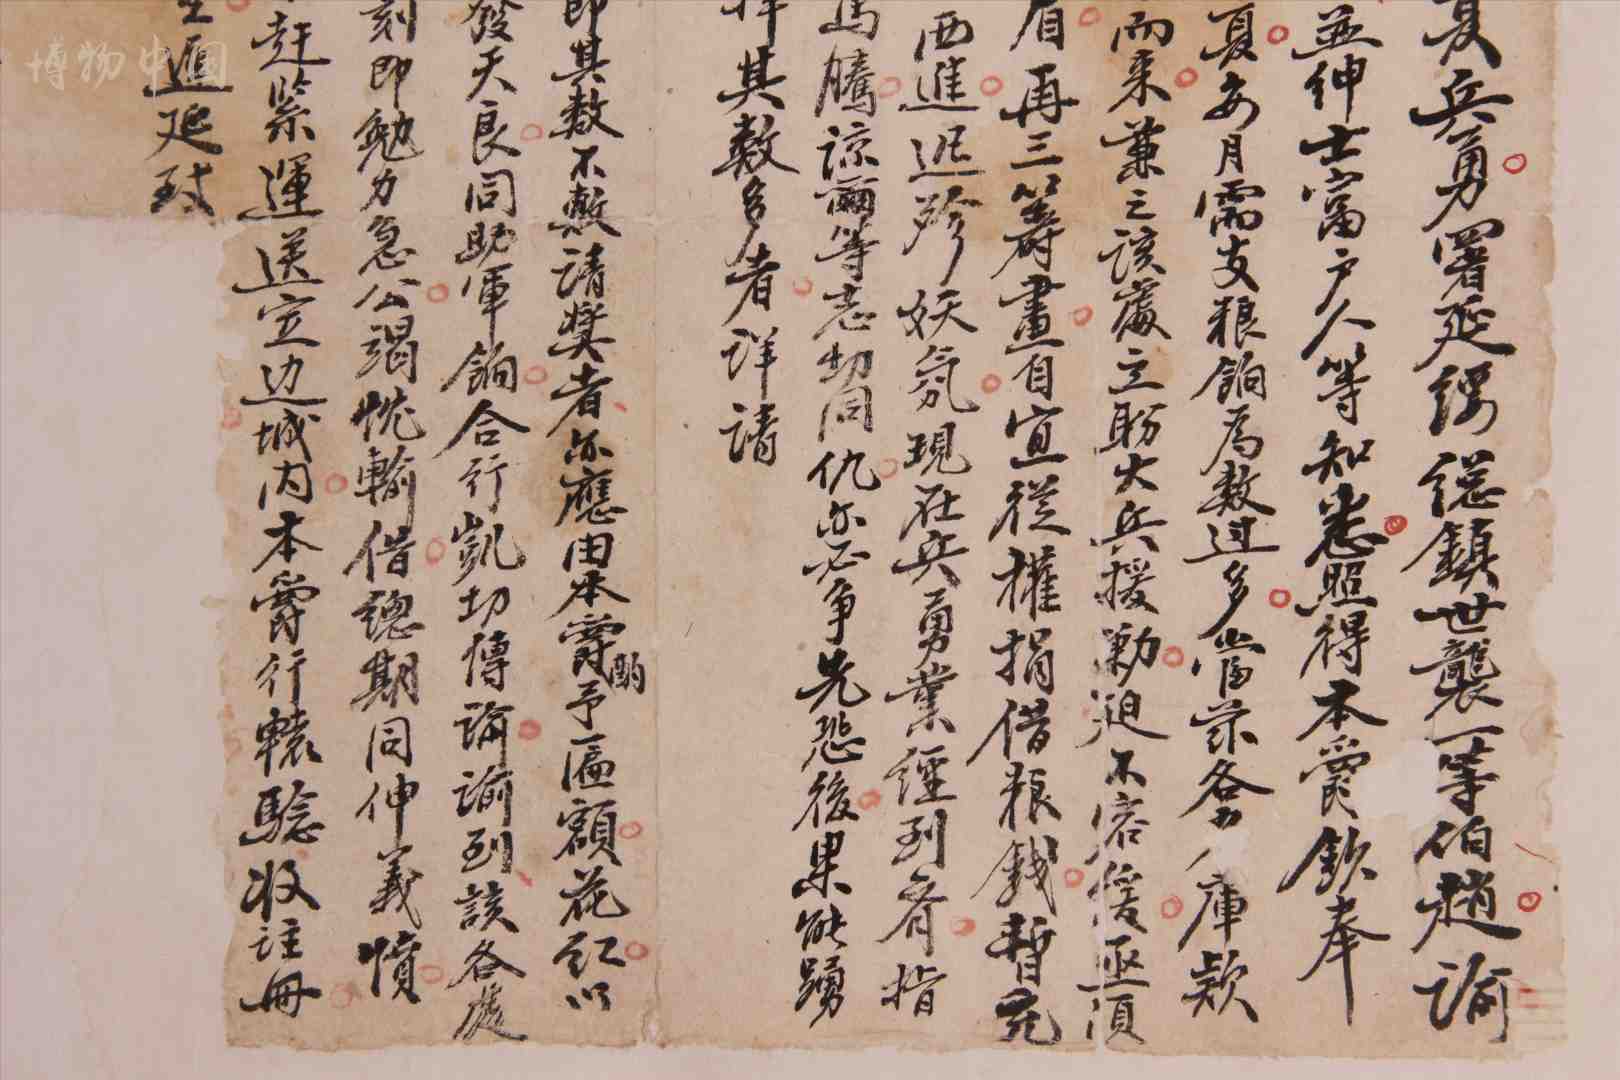 夏兵勇署延绥總鎮世襲一等伯趙諭
並紳士富户人等知悉照得本爵欽奉
夏每月需支粮餉為数过多當兹各 庫款
而来兼之該處立盼大兵援勦迫不容缓亟須
眉再三籌畫自宜從權捐借粮錢暫充
西進迅殄妖氛現在兵勇業經到齊指
馬騰諒爾等志切同仇亦必争先恐後果能踴
其数多者詳請
即其数不敷請奬者亦應由本爵酌予匾額花红以
發天良同助軍餉合行凱切傳諭諭到該各處
刻即勉力急公竭忱輸借總期同伸義憤
赶緊運送定边城内本爵行轅驗收註冊
延玩
博物中国